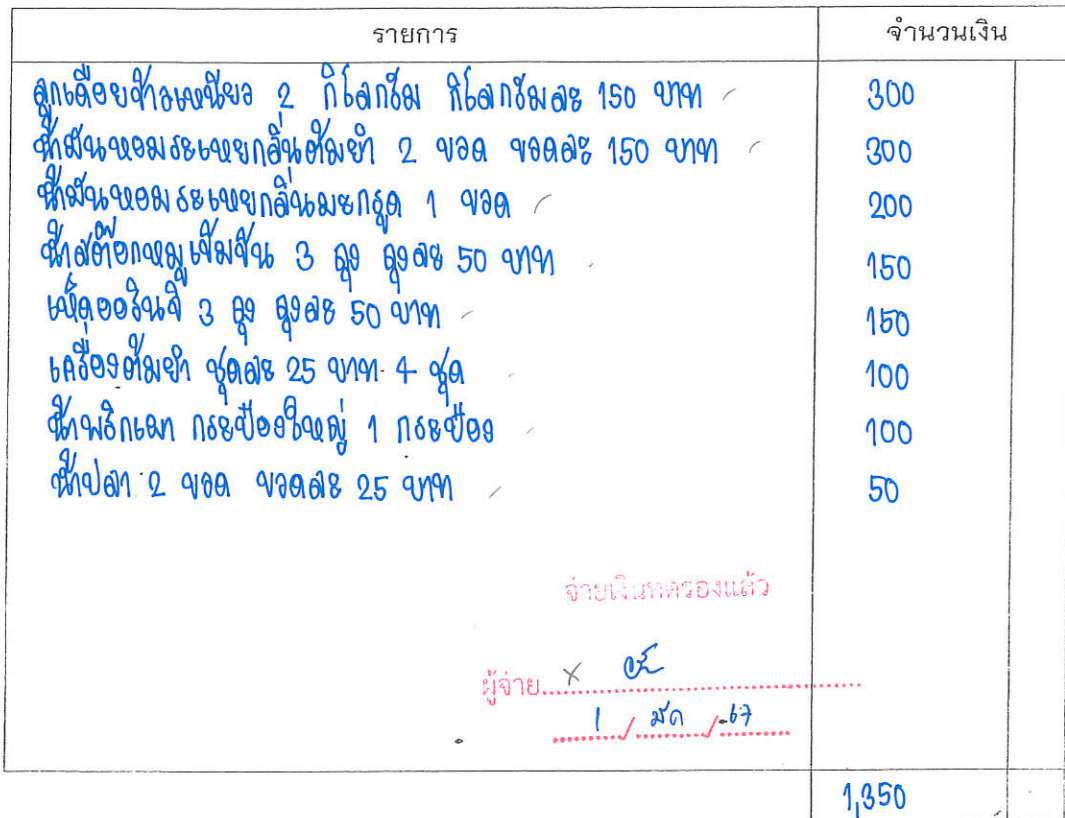 รายการ จำนวนเงิน
ลูกเดือยข้าวเหนียว 2 กิโลกรัม กิโลกรัมละ 150 บาท 300
น้ำมันหอมระเหยกลิ่นต้มยำ 2 ขวด ขวดละ 150 บาท 300
น้ำมันหอมระเหยกลิ่นมะกรูด 1 ขวด 200
น้ำสต๊อกหมูเข้มข้น 3 ถุง ถุงละ 50 บาท 150
เห็ดออรินจิ 3 ถุง ถุงละ 50 บาท 150
เครื่องต้มยำ ชุดละ 25 บาท 4 ชุด 100
น้ำพริกเผา กระป๋องใหญ่ 1 กระป๋อง 100
น้ำปลา 2 ขวด ขวดละ 25 บาท 50
จ่ายเงินทดรองแล้ว
ผู้จ่าย
1 / มีค / 67
1,350